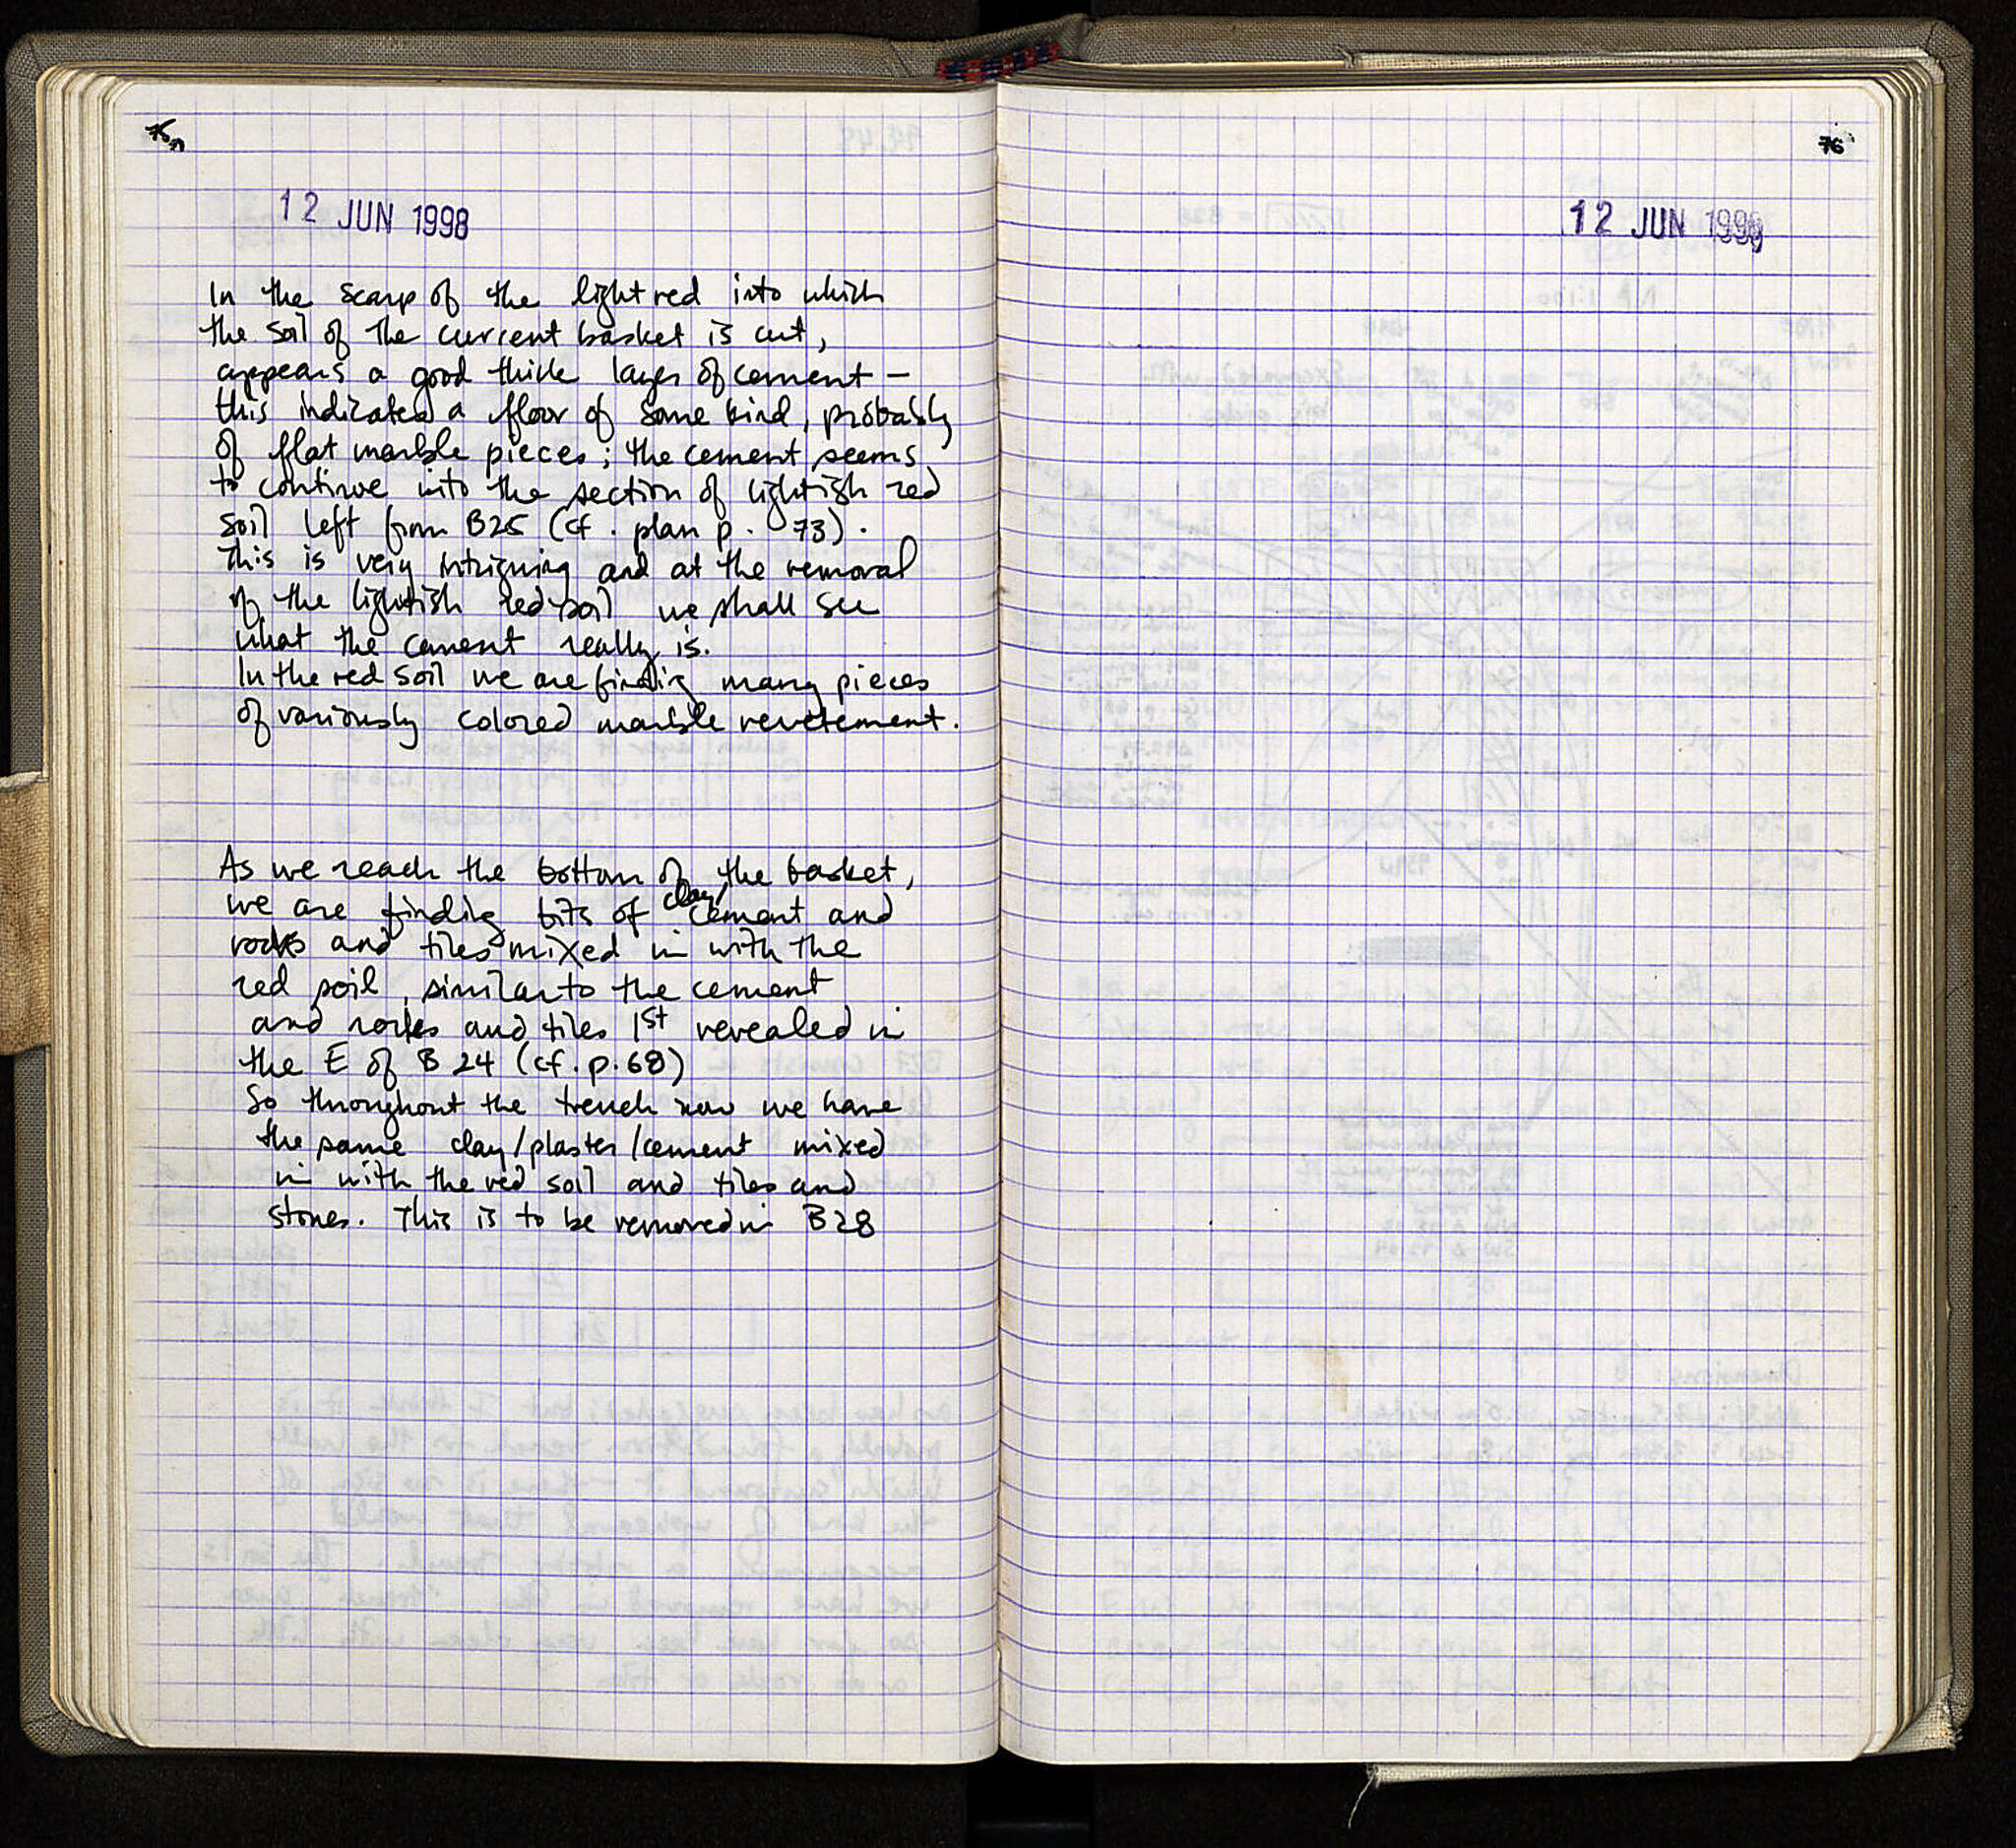 12 JUN 1998
In the scarp of the light red into which
the soil of the current basket is cut,
appears a good thick layer of cement –
this indicates a floor of some kind, probably
of flat marble pieces; the cement seems
to continue into the section of lightish red
soil left from B25 (cf. plan p. 73).
This is very intriguing and at the removal
of the lightish red soil we shall see
what the cement really is.
In the red soil we are finding many pieces
of variously colored marble revetement.
As we reach the bottom of the basket,
we are finding bits of clay/cement and
rocks and tiles mixed in with the
red soil, similar to the cement
and rocks and tiles 1st revealed in
the E of B24 (cf. p. 68)
So throughout the trench now we have
the same clay/plaster/cement mixed
in with the red soil and tiles and
stones. This is to be removed in B28
76
12 JUN 1998